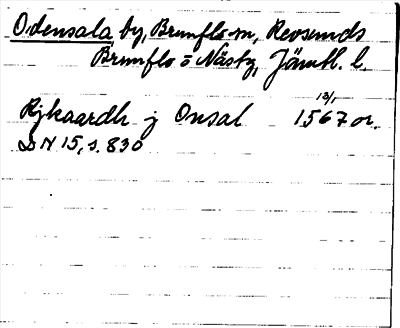 Odensala by, Brunflo sn, Revsunds
Brunflo o Näsby, Jämtl. l.
13/1
Rikaardh j Onsal 1567 or.
DN 15, s. 830